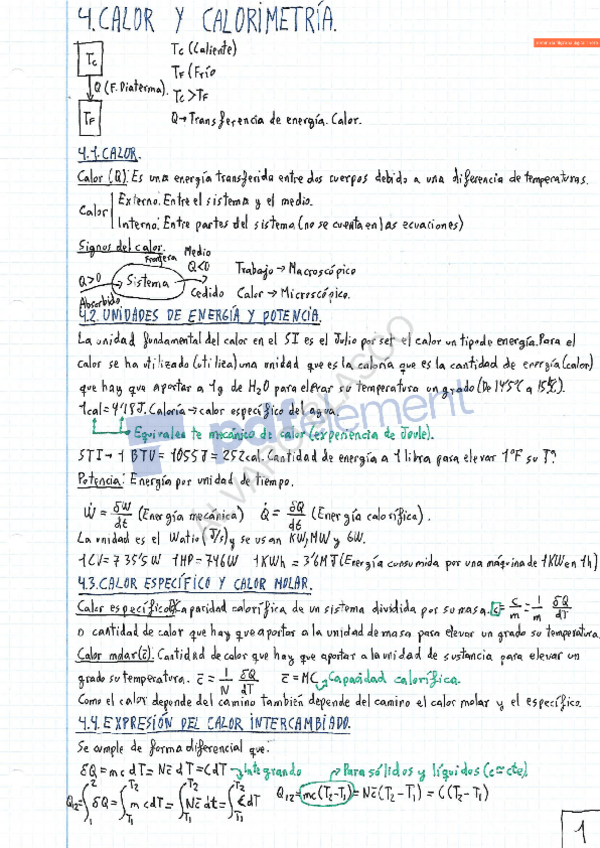 4. CALOR Y CALORIMETRÍA.
Tc
Tc (Caliente)
TF (Frío
Q (F. Diaterma).
Tc > TF
TF
Q → Transferencia de energía. Calor.
4.1. CALOR.
Calor (Q): Es una energía transferida entre dos cuerpos debido a una diferencia de temperaturas.
Calor
Externo: Entre el sistema y el medio.
Interno: Entre partes del sistema (no se cuenta en las ecuaciones)
Signos del calor.
Frontera
Medio
Q>0
Sistema
Q<0
Trabajo → Macroscópico
Absorbido
Cedido
Calor → Microscópico.
4.2. UNIDADES DE ENERGÍA Y POTENCIA.
La unidad fundamental del calor en el SI es el Julio por ser el calor un tipo de energía. Para el
calor se ha utilizado (utiliza) una unidad que es la caloría que es la cantidad de energía (calor)
que hay que aportar a 1g de H2O para elevar su temperatura un grado (De 14'5°C a 15'5°C).
1cal = 4'18 J. Caloría → calor específico del agua.
Equivalente mecánico de calor (experiencia de Joule).
STI → 1 BTU = 1055 J = 252cal. Cantidad de energía a 1 libra para elevar 1°F su T?
Potencia: Energía por unidad de tiempo.
Ẇ = δW/dt (Energía mecánica) Q̇ = δQ/dt (Energía calorífica).
La unidad es el Watio (J/s) y se usan KW, MW y GW.
1CV = 735'5W 1HP = 746W 1KWh = 3'6MJ (Energía consumida por una máquina de 1KW en 1h)
4.3. CALOR ESPECÍFICO Y CALOR MOLAR.
Calor específico: Capacidad calorífica de un sistema dividida por su masa. c = C/m = 1/m δQ/dT
o cantidad de calor que hay que aportar a la unidad de masa para elevar un grado su temperatura.
Calor molar (c̄). Cantidad de calor que hay que aportar a la unidad de sustancia para elevar un
grado su temperatura. c̄ = 1/N δQ/dT c̄ = MC Capacidad calorífica.
Como el calor depende del camino también depende del camino el calor molar y el específico.
4.4. EXPRESIÓN DEL CALOR INTERCAMBIADO.
Se cumple de forma diferencial que:
δQ = mcdT = Nc̄dT = CdT → Integrando → Para sólidos y líquidos (c≃cte).
Q12 = ∫₁² δQ = ∫T1T2 mcdT = ∫T1T2 Nc̄dt = ∫T1T2 CdT Q12 = mc(T2-T1) = Nc̄(T2-T1) = C(T2-T1)
1
pdfelement
ÁLVARO BLASCO